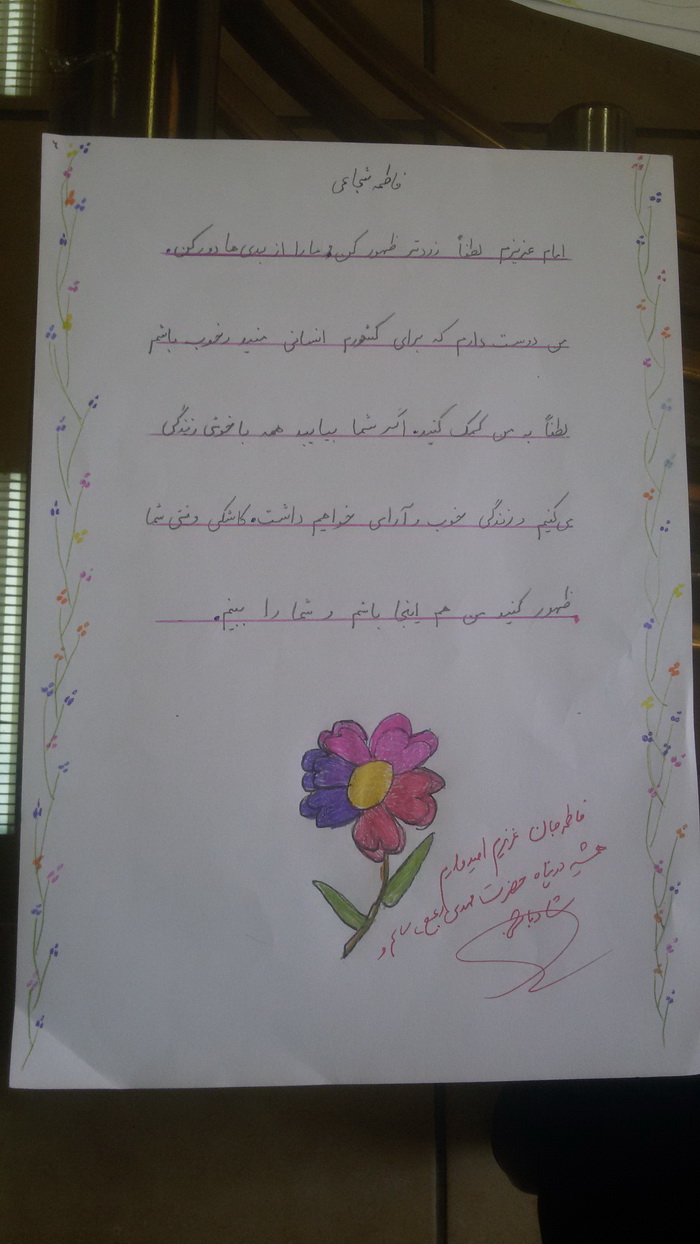 فاطمه شجاعی
امام عزیزم لطفاً زودتر ظهور کن و ما را از بدی ها دور کن.
من دوست دارم که برای کشورم انسانی مفید و خوب باشم
لطفاً به من کمک کنید. اگر شما بیایید همه با خوشی زندگی
می کنیم و زندگی خوب و آرامی خواهیم داشت. کاشکی وقتی شما
ظهور کنید من هم اینجا باشم و شما را ببینم.
فاطمه جان عزیزم امیدوارم
همیشه در پناه حضرت مهدی (عج) سالم و
شاد باشی